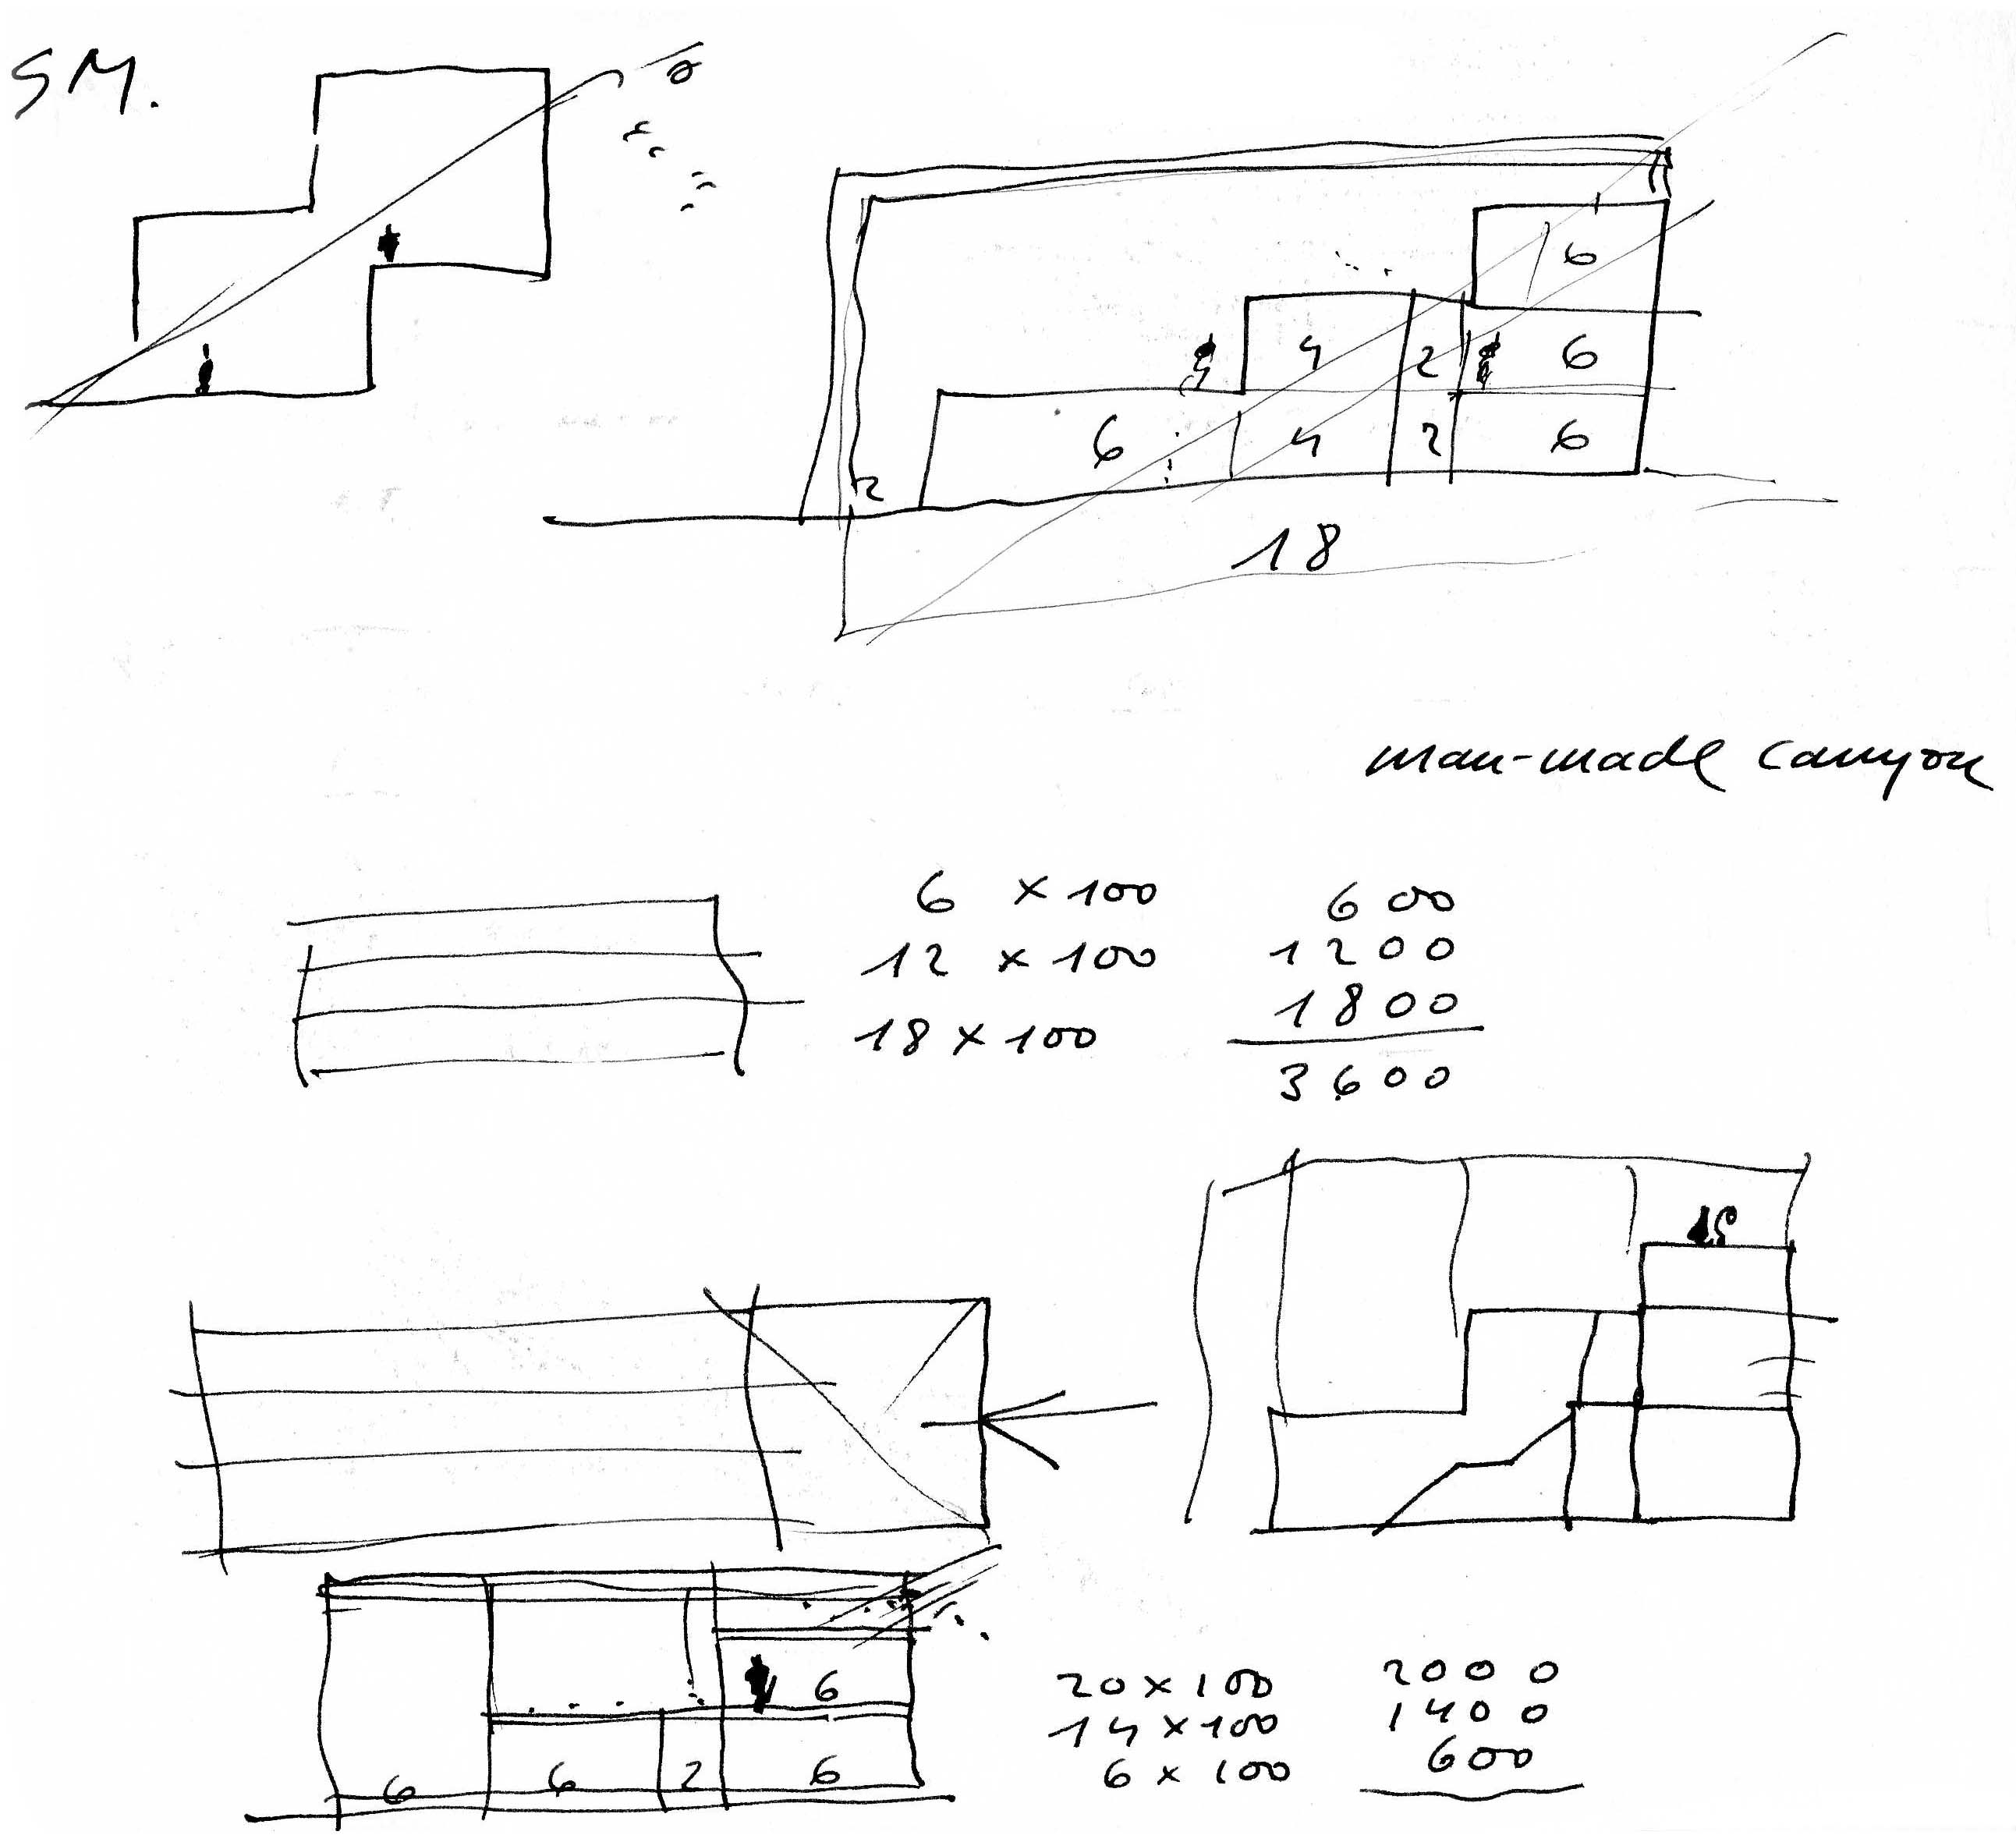 SM.
6
4 2 6
6 4 2 6
2
18
man-made canyon
6 x 100 600
12 x 100 1200
18 x 100 1800
3600
6
6 6 2 6
20 x 100 2000
14 x 100 1400
6 x 100 600